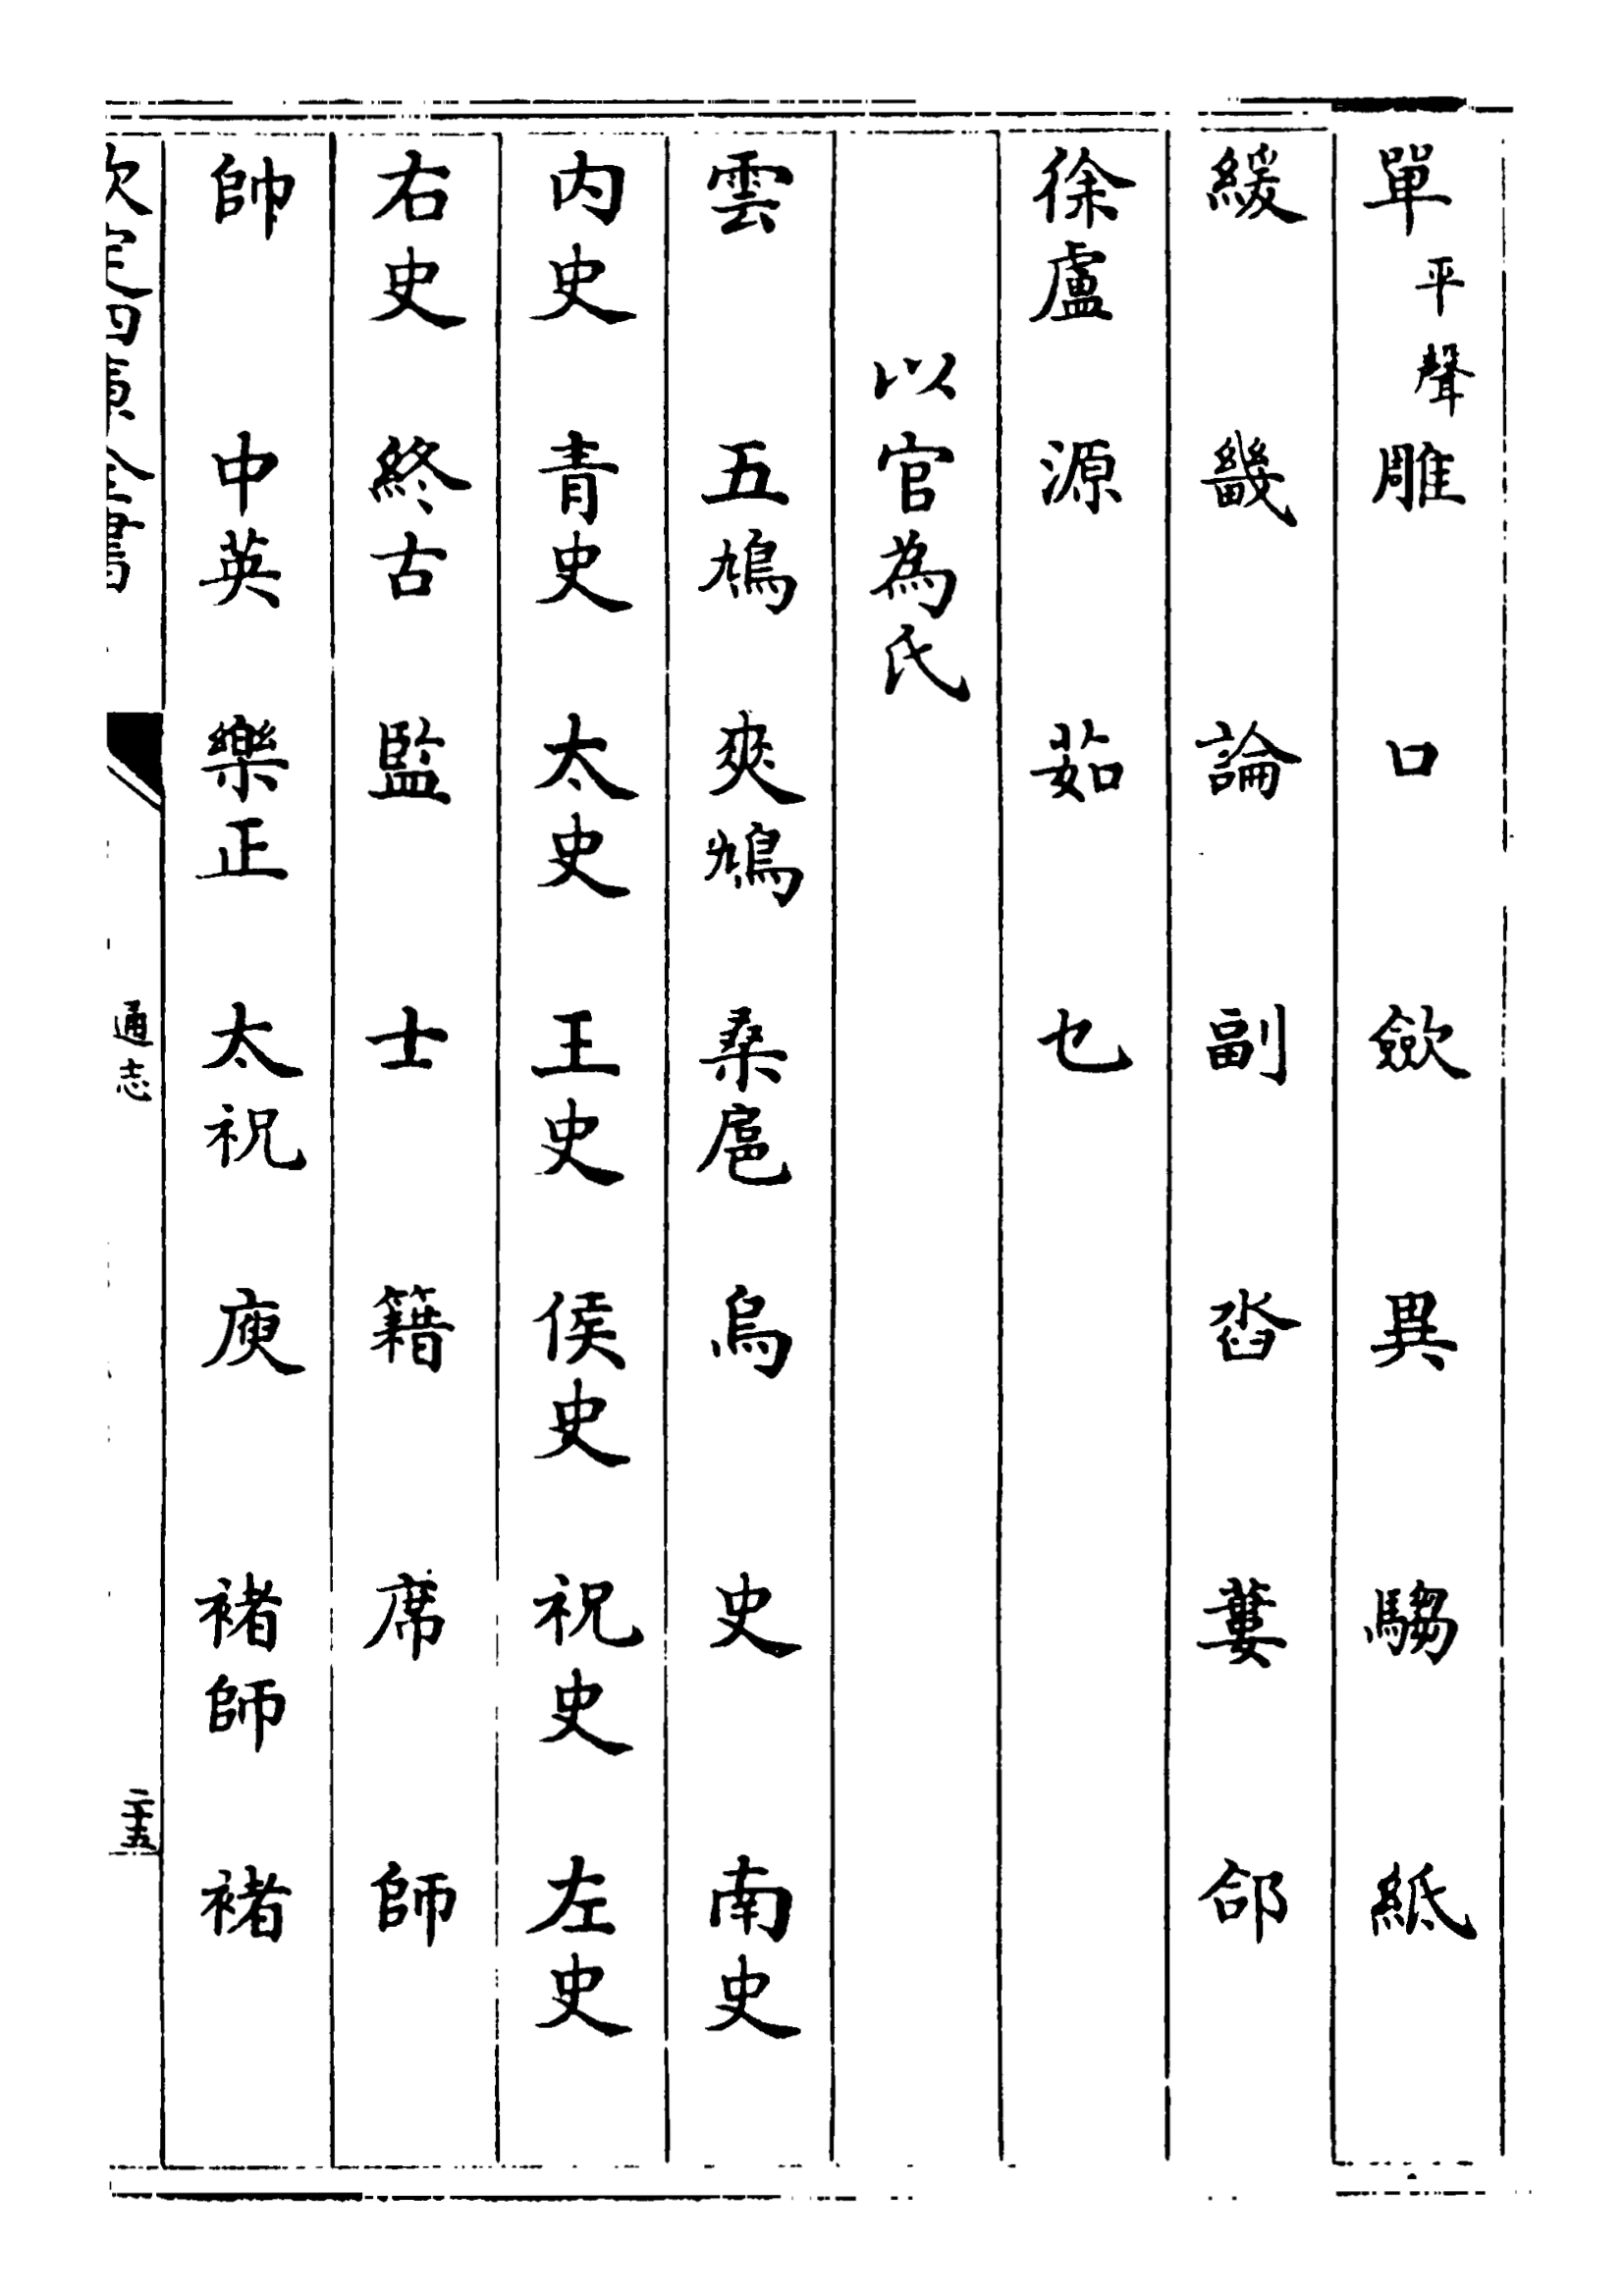 單平聲 雕 口 歛 異 騶 紙
緩 畿 論 副 沓 蔞 郃
徐盧 源 茹 乜
以官為氏
雲 五鳩 爽鳩 桑扈 烏 史 南史
内史 青史 太史 王史 侯史 祝史 左史
右史 終古 監 士 籍 席 師
帥 中英 樂正 太祝 庾 褚師 褚
欽定四庫全書
通志
二十五